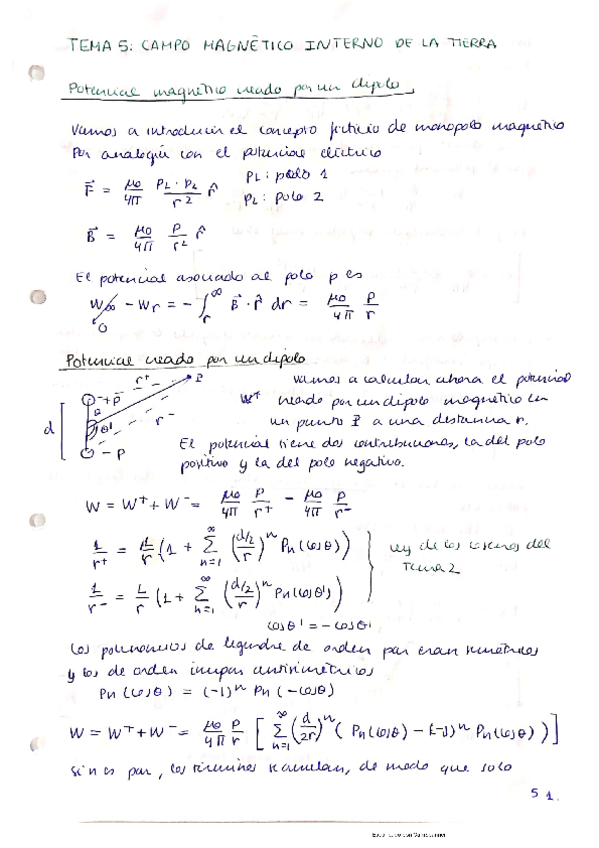 TEMA 5: CAMPO MAGNÉTICO INTERNO DE LA TIERRA
Potencial magnético creado por un dipolo.
Vamos a introducir el concepto ficticio de monopolo magnético
Por analogía con el potencial eléctrico
F⃗ = μ₀/4π p₁·p₂/r² r̂
p₁: polo 1
p₂: polo 2
B⃗ = μ₀/4π p/r² r̂
El potencial asociado al polo p es
W∞ − Wr = −∫_r^∞ B⃗·r̂ dr = μ₀/4π p/r
0
Potencial creado por un dipolo
r⁺ P
+p
θ θ' r⁻
d
−p
Vamos a calcular ahora el potencial
W⁺ creado por un dipolo magnético en
un punto P a una distancia r.
El potencial tiene dos contribuciones, la del polo
positivo y la del polo negativo.
W = W⁺ + W⁻ = μ₀/4π p/r⁺ − μ₀/4π p/r⁻
1/r⁺ = 1/r (1 + Σ_{n=1}^∞ (d/2/r)ⁿ Pn(cosθ))
ley de los cosenos del
Tema 2
1/r⁻ = 1/r (1 + Σ_{n=1}^∞ (d/2/r)ⁿ Pn(cosθ'))
cosθ' = −cosθ
Los polinomios de legendre de orden par eran simétricos
y los de orden impar antisimétricos
Pn(cosθ) = (−1)ⁿ Pn(−cosθ)
W = W⁺ + W⁻ = μ₀/4π p/r [Σ_{n=1}^∞ (d/2r)ⁿ (Pn(cosθ) − (−1)ⁿ Pn(cosθ))]
Si n es par, los términos se anulan, de modo que solo
5 1.